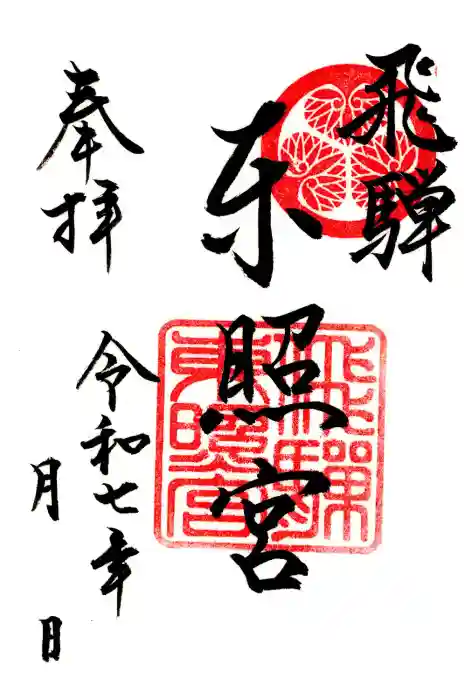 飛騨
東照宮
奉拝
令和七年
月
日
飛騨
東照宮